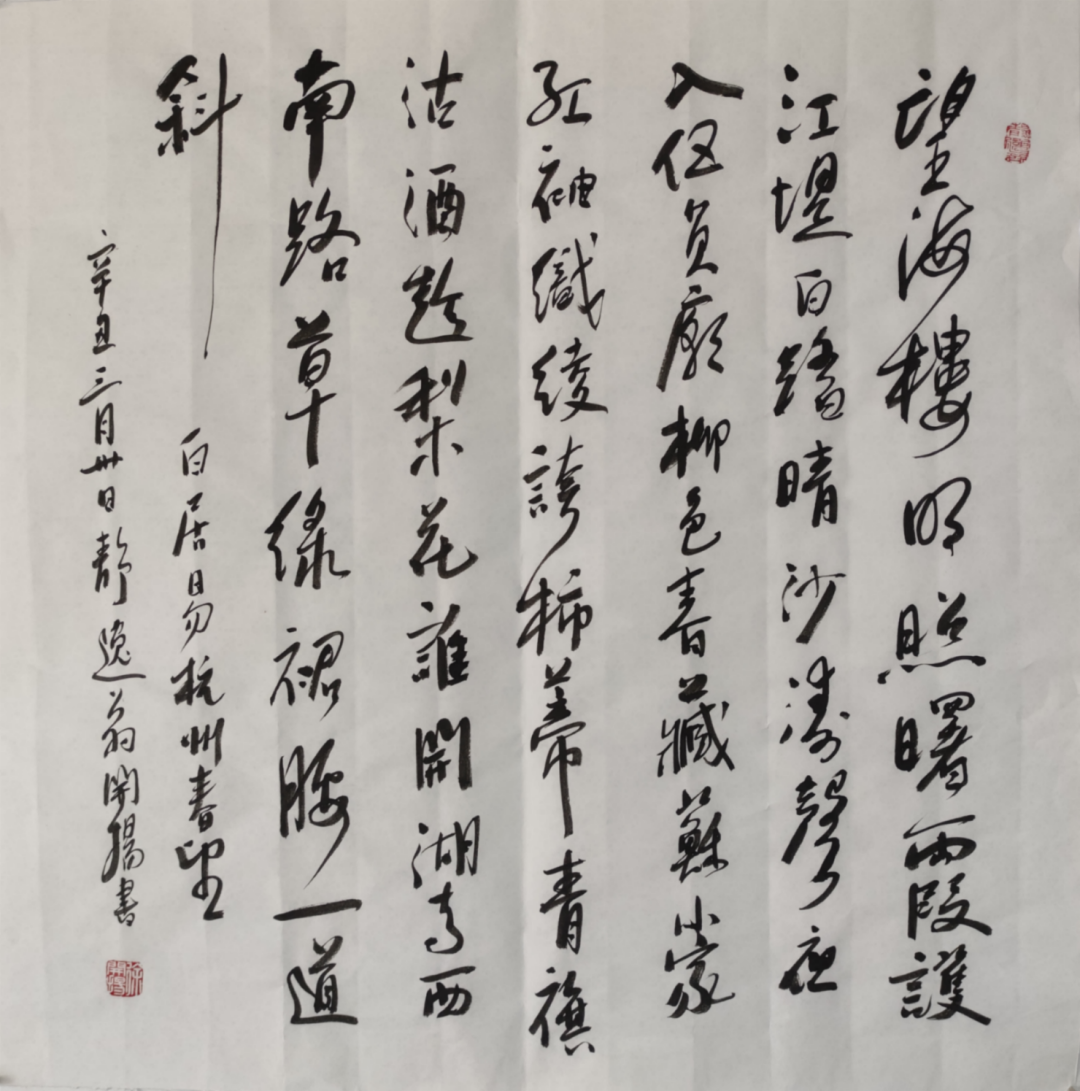 望海樓明照曙霞護
江堤白踏晴沙濤聲夜
入伍員廟柳色春藏蘇小家
紅袖織綾誇柿蒂青旗
沽酒趁梨花誰開湖寺西
南路草綠裙腰一道
斜
白居易杭州春望
辛丑三月卅日靜逸翁開揚書